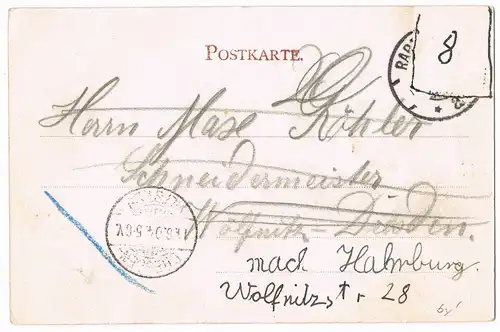 POSTKARTE.
8
Herrn Max Köhler
Schneidermeister
Wölfnitz-Dresden.
nach Hamburg.
Wolfnitzstr 28